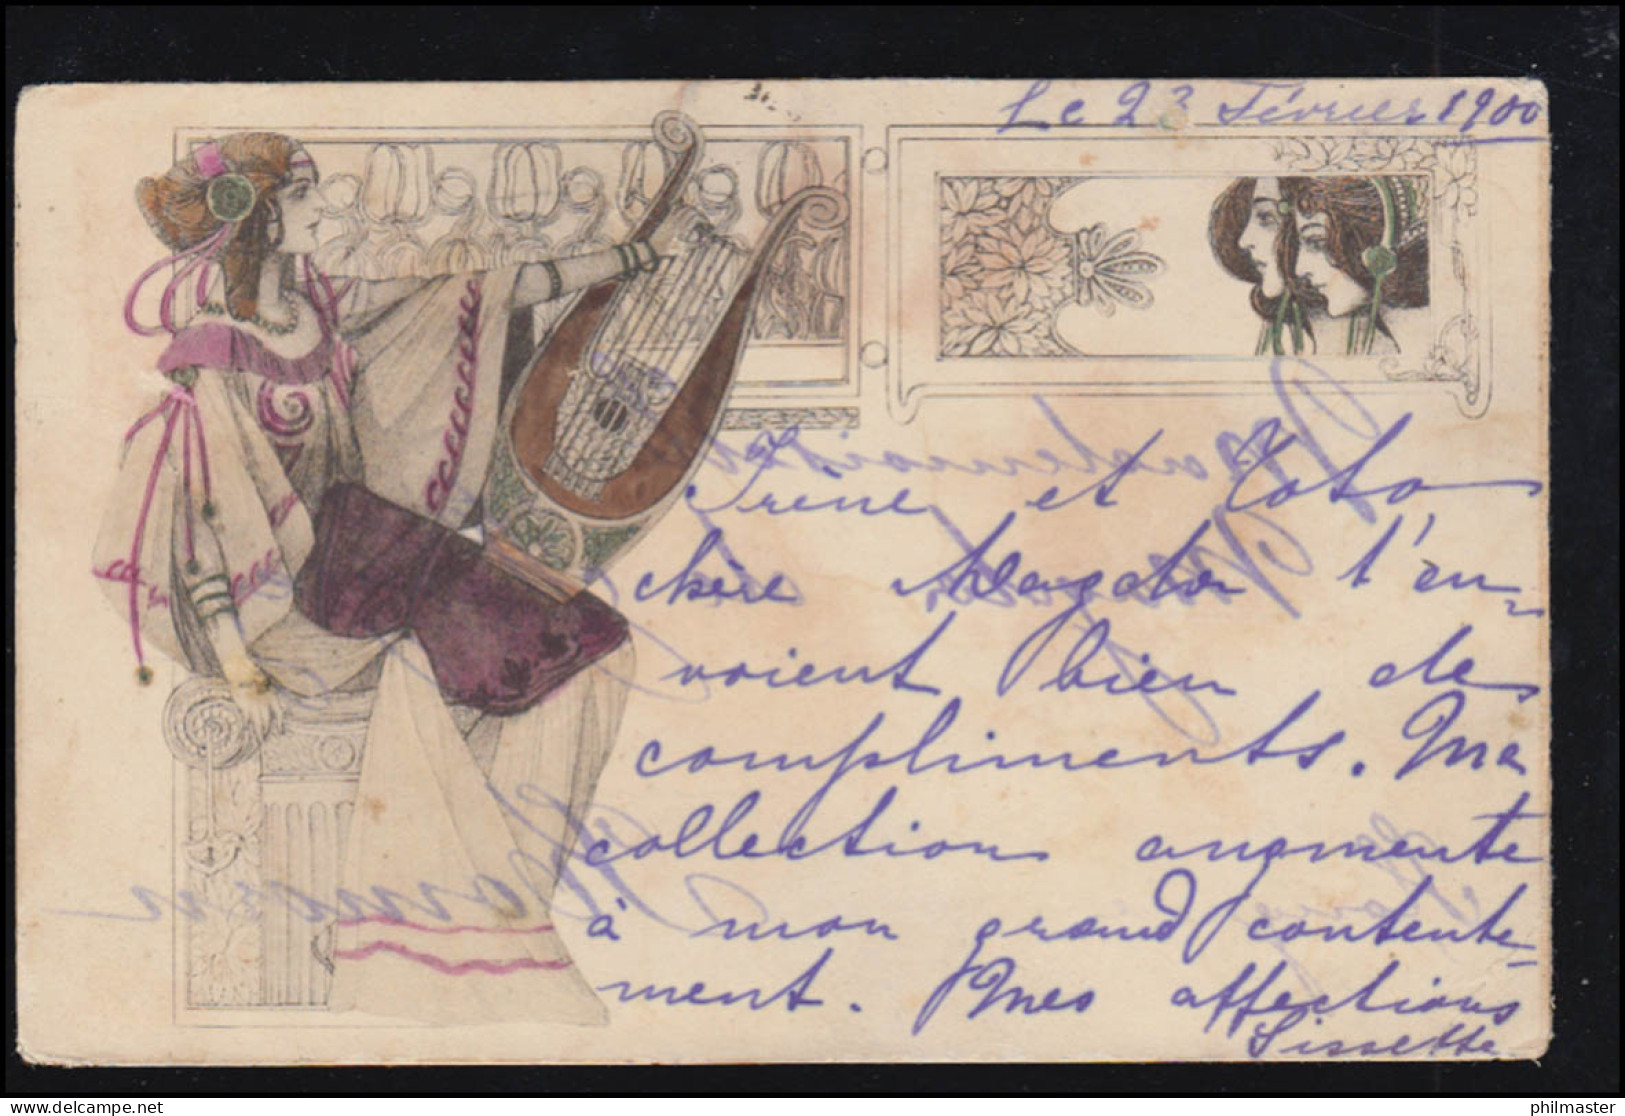 Le 23 Février 1900
Irène et Toto
chère Magda t'en-
voient bien des
compliments. Ma
collection augmente
à mon grand contente-
ment. Mes affections
Lissette
delcampe.net
philmaster